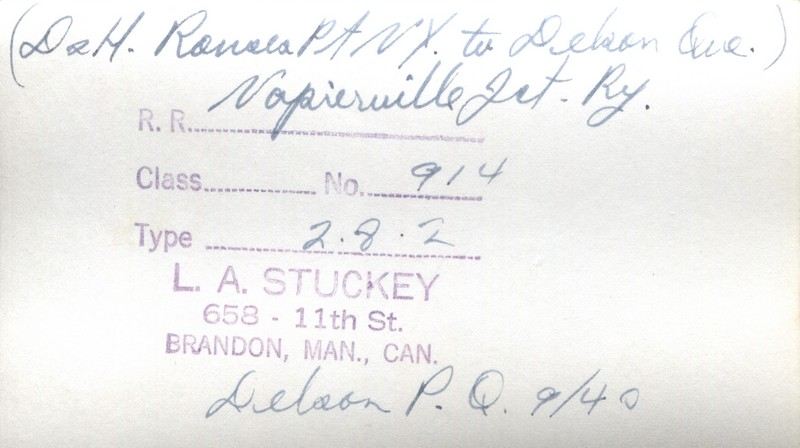 (D&H. Rouses Pt N.Y. to Delson Que.)
Napierville Jct. Ry.
R. R.
Class No. 914
Type 2.8.2
L. A. STUCKEY
658 - 11th St.
BRANDON, MAN., CAN.
Delson P. Q. 9/40